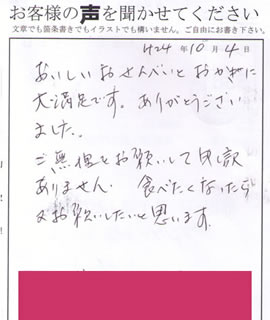 お客様の声を聞かせてください
文章でも箇条書きでもイラストでも構いません。ご自由にお書き下さい。
H24年10月4日
おいしいおせんべいとおかきに
大満足です。ありがとうござい
ました。
ご無理をお願いして申し訳
ありません。食べたくなったら
又お願いしたいと思います。